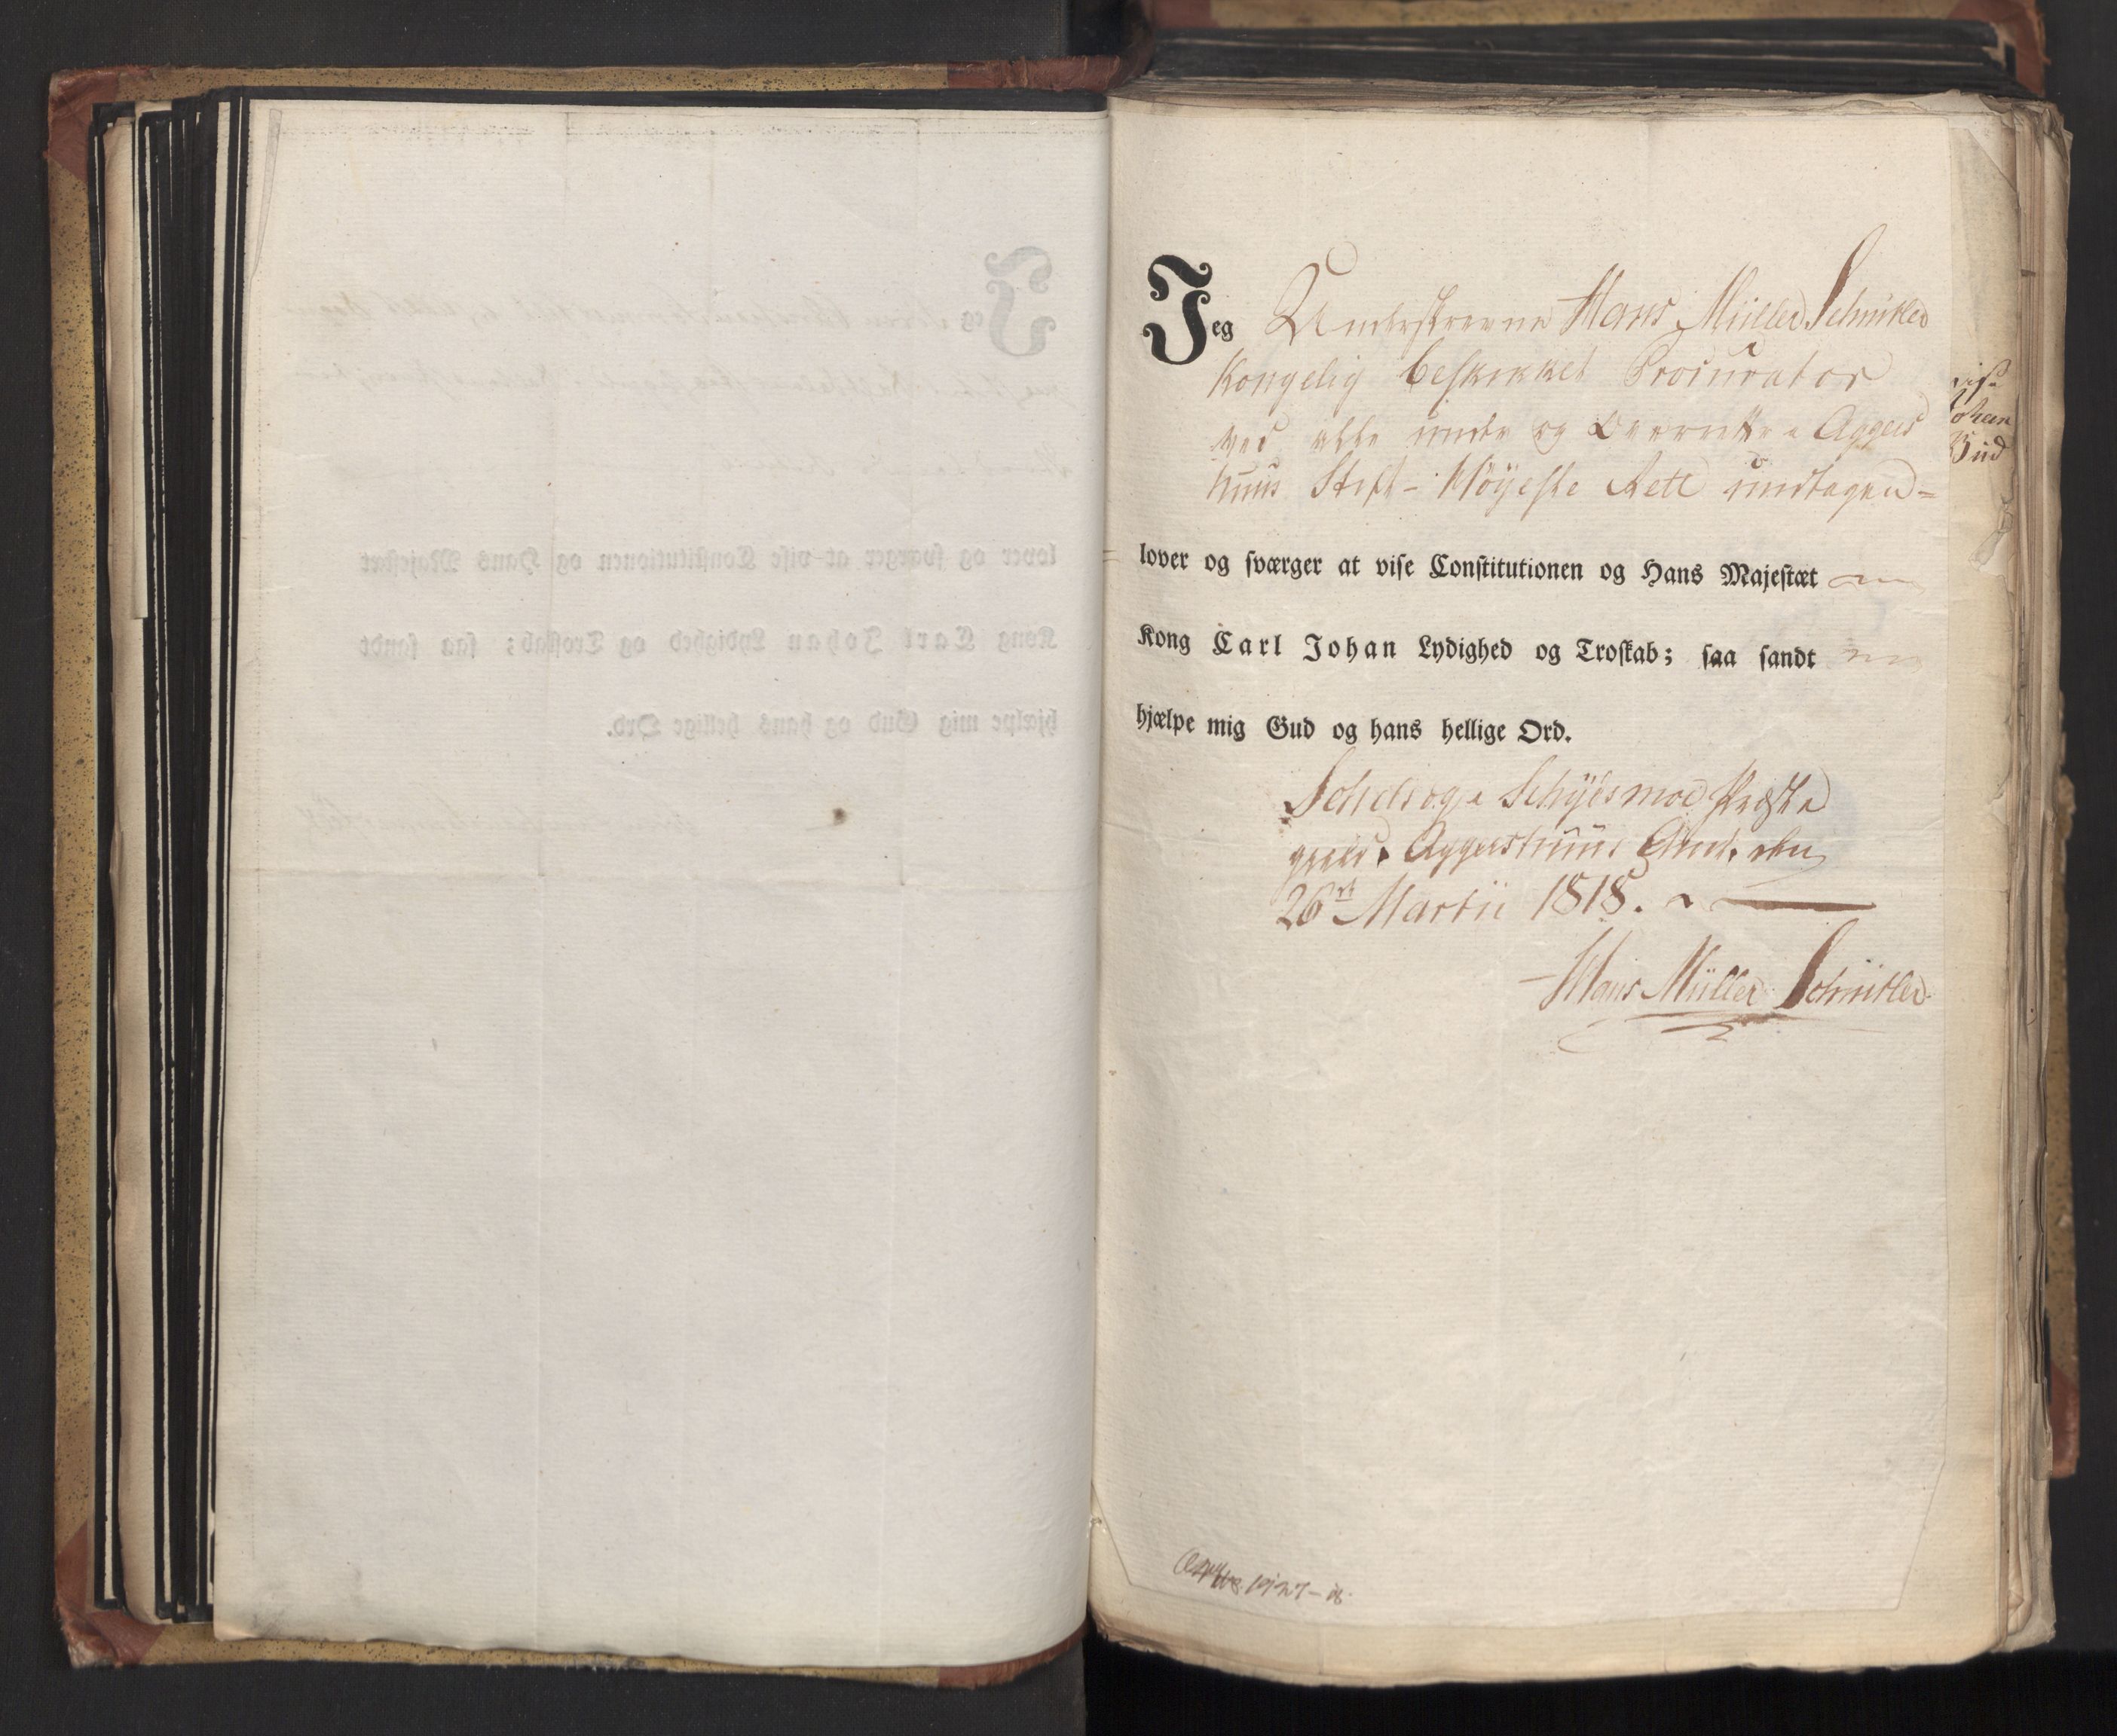 Jeg Underskrevne Hans Müller Schnitler
Kongelig beskikket Procurator
ved alle under og Overretter i Aggers
huus Stift - Höyeste Rett undtagen =
lover og sværger at vise Constitutionen og Hans Majestæt
Kong Carl Johan Lydighed og Troskab; saa sandt
hjælpe mig Gud og hans hellige Ord.
Præste
gield. Aggershuus Amt. den
26de Martii 1818.
Hans Müller Schnitler